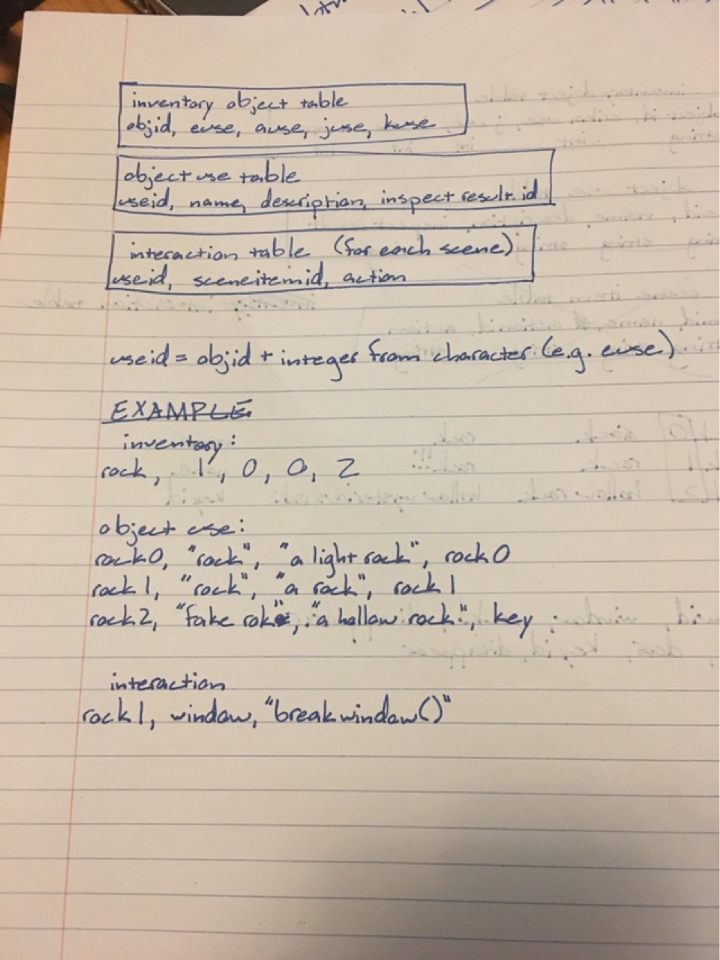 inventory object table
objid, euse, ause, juse, kuse
object use table
useid, name, description, inspect result id
interaction table (for each scene)
useid, sceneitemid, action
useid = objid + integer from character (e.g. euse)
EXAMPLE
inventory:
rock, 1, 0, 0, 2
object use:
rock0, "rock", "a light rock", rock0
rock1, "rock", "a rock", rock1
rock2, "fake rok", "a hollow rock", key
interaction
rock1, window, "breakwindow()"